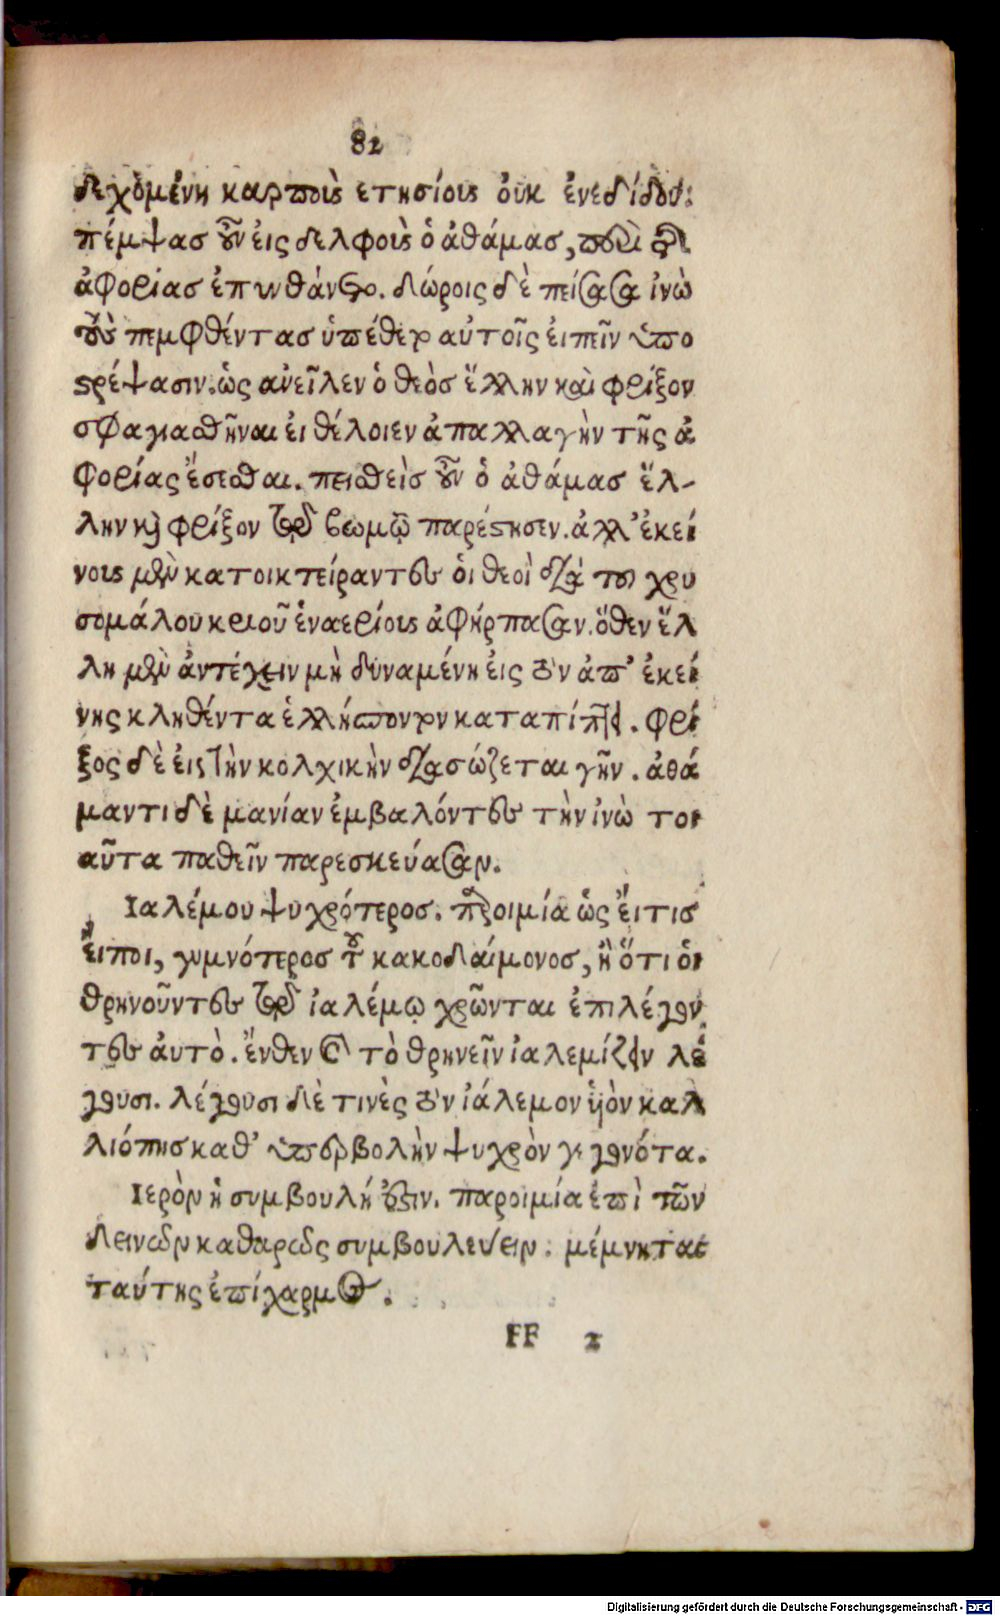 82
δεχομένη καρποὺς ετησίους οὐκ ἐνεδίδου:
πέμψασ οὖν εἰς δελφοὺς ὁ ἀθάμασ, περὶ τῆς
ἀφορίας ἐπυνθάνετο. δώροις δὲ πείσασα ἰνὼ
τοὺς πεμφθέντασ ὑπέθετο αὐτοῖς εἰπεῖν ὑπο
στρέψασιν. ὡς ανεῖλεν ὁ θεὸσ ἕλλην καὶ φρίξον
σφαγιασθῆναι εἰ θέλοιεν ἀπαλλαγὴν τῆς ἀ
φορίας ἔσεσθαι. πεισθεὶσ οὖν ὁ ἀθάμασ ἕλ-
λην καὶ φρίξον τῷ βωμῷ παρέστησεν. ἀλλ' ἐκεί
νους μὲν κατοικτείραντες ὁι θεοὶ διὰ του χρυ
σομάλου κριοῦ ἐναερίους ἀφήρπασαν. ὅθεν ἕλ
λη μὲν ἀντέχειν μὴ δυναμένη εἰς τὸν ἀπ' ἐκεί
νης κληθέντα ἑλλήσποντον καταπίπτει. φρί
ξος δὲ εἰς τὴν κολχικὴν διασώζεται γῆν. ἀθά
μαντι δὲ μανίαν ἐμβαλόντες τὴν ἰνὼ τοι
αῦτα παθεῖν παρεσκεύασαν.
Ιαλέμου ψυχρότεροσ. παροιμία ὡς ἔιτισ
ἔιποι, γυμνότεροσ τοῦ κακοδαίμονοσ, ἢ ὅτι ὁι
θρηνοῦντες τῷ ἰαλέμῳ χρῶνται ἐπιλέγον
τες ἀυτὸ. ἔνθεν καὶ τὸ θρηνεῖν ἰαλεμίζειν λέ
γουσι. λέγουσι δὲ τινὲς τὸν ἰάλεμον ὑιὸν καλ
λιόπησ καθ' ὑπερβολὴν ψυχρὸν γεγονότα.
Ιερὸν ἡ συμβουλή ἐστιν. παροιμία ἐπὶ τῶν
δεινων καθαρως συμβουλεύειν: μέμνηται
ταύτης ἐπίχαρμος.
FF 2
Digitalisierung gefördert durch die Deutsche Forschungsgemeinschaft - DFG